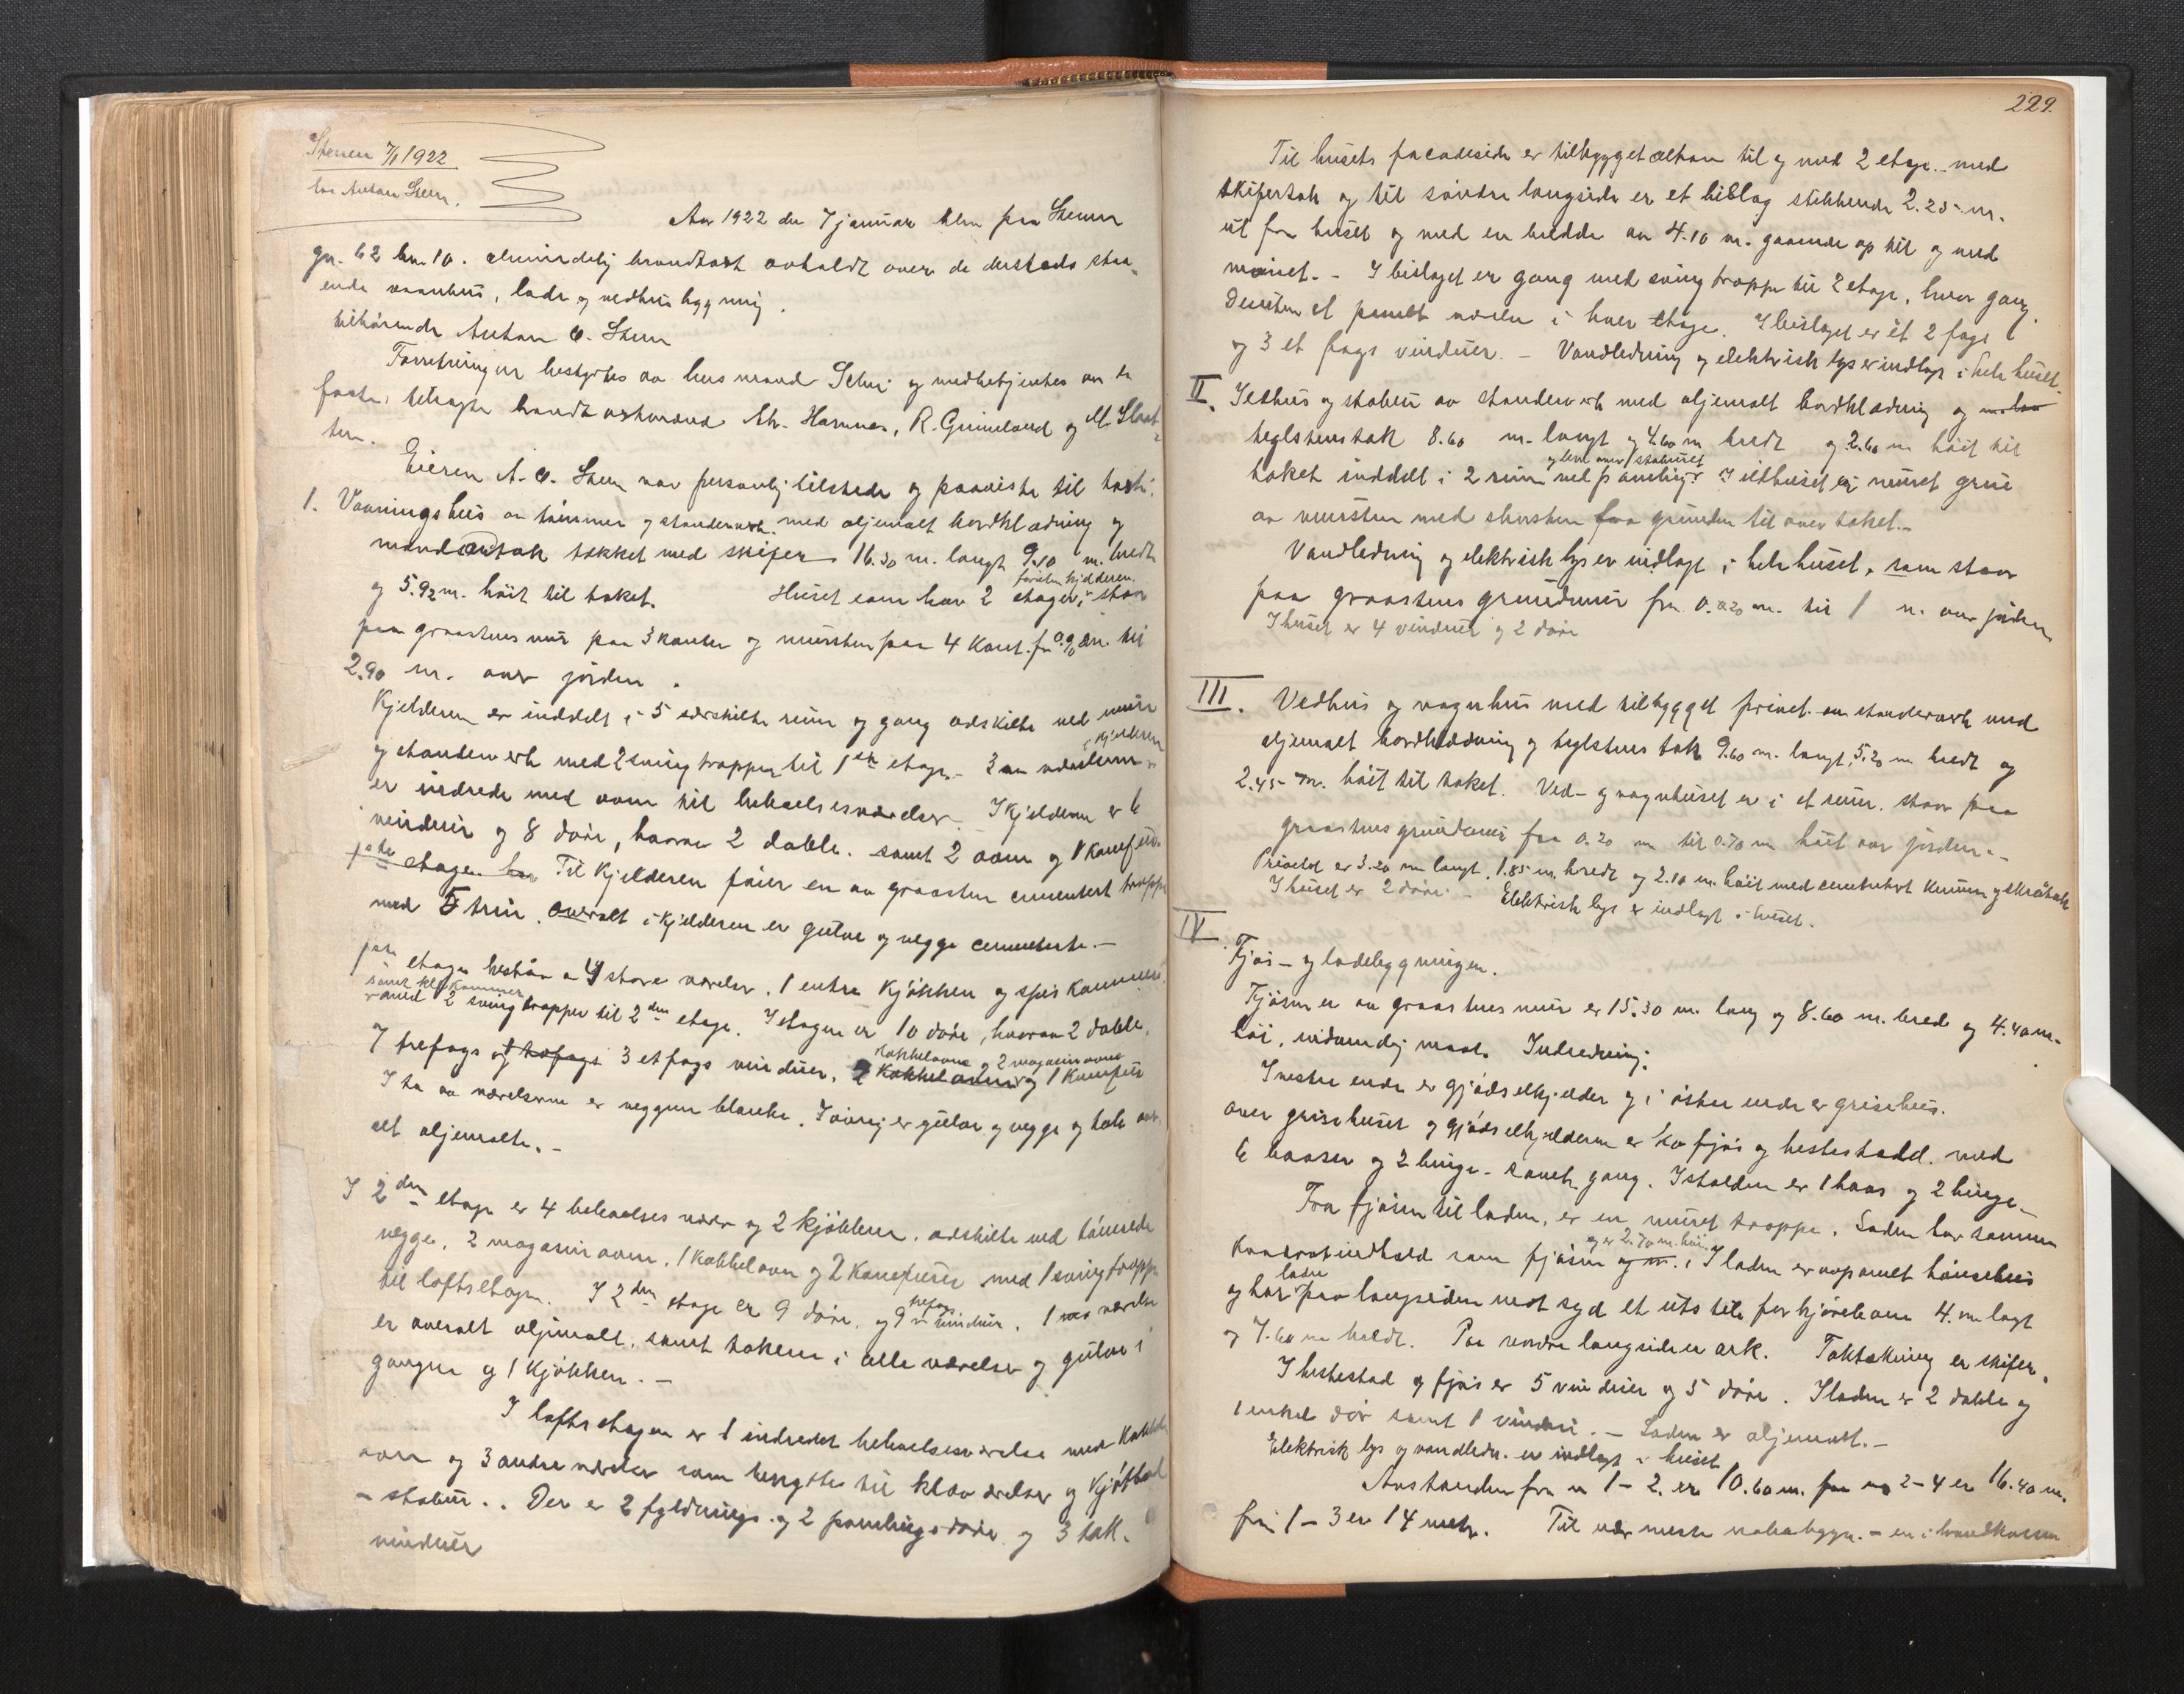 Stenen 7/1 1922
hos Anton Steen.
Aar 1922 den 7 januar blev paa Steenen
gn. 62 bn. 10. almindelig brandtakst avholdt over de dersteds staa-
ende vaanhus, lade og vedhusbygning.
tilhørende Anton O. Steen
Forretningen bestyrtes av lensmand og medbetjentes av de
faste, beragte brandtakstmænd Hamnes, R. Grimeland og M. Slaat-
ten.
Eieren A. O. Steen var personlig tilstede og paaviste til takst:
1. Vaaningshus av tømmer og standerverk med oljemalt bordklædning og
tak tækket med skifer 16.30 m. langt 9.10 m. bredt
og 5.92 m. høit til taket. Huset som har 2 etager, foruten kjelderen, staar
paa graastens mur paa 3 kanter og mursten paa 4 kant. fra 0.90 m. til
2.90 m. over jorden.
Kjelderen er inddelt i 5 særskilte rum og gang adskilte ved mure
og standerverk med 2 svingtrapper til 1ste etage. 3 av værelserne i kjelderen
er indrede med ovne til beboelsesværelser. I kjelderen er 6
vinduer og 8 døre, hvorav 2 doble. samt 2 ovne og 1 komfur.
1ste etage har Til kjelderen fører en av graasten cementert trappe
med 5 trin. overalt i kjelderen er gulve og vegge cementerte.-
1ste etage bestaar av 4 store værelser, 1 entre kjøkken og spiskammers
samt klækammer
samt 2 svingtrapper til 2den etage. I etagen er 10 døre, hvorav 2 doble,
7 trefags og tofags 3 etfags vinduer, 2 kakkelovne og 2 magasinovne og 1 komfur
I to av værelserne er veggene blanke. I øvrig er gulve og vegge og tak over-
alt oljemalte.-
I 2den etage er 4 beboelsesvær. og 2 kjøkken. adskilte ved tømrede
vegge, 2 magasinovne, 1 kakkelovn og 2 komfurer med 1 svingtrappe
til loftsetagen. I 2den etage er 9 døre, og 9 trefags vinduer. 1 værelse
er overalt oljemalt. samt takene i alle værelser og gulve i
gangen og 1 kjøkken.-
I loftsetagen er 1 indredet beboelsesværelse med kakkel-
ovn og 3 andre værelser som benyttes til klæværelser og kjøtbod
- stabur.. Der er 2 fyldnings. og 2 panelingsdøre og 3 tak-
vinduer
229.
Til husets facadeside er tilbygget altan til og med 2 etage. med
skifertak og til søndre langside er et bislag stikkende 2.25 m.
ut fra huset og med en bredde av 4.10 m. gaaende op til og med
mønet.- I bislaget er gang med svingtrappe til 2 etage, hvor gang
desuten et panelt værelse i hver etage. I bislaget er et 2 fags
og 3 et fags vinduer. - Vandledning og elektrisk lys er indlagt i hele huset.
II. Ildhus og stabur av standerverk med oljemalt bordklædning og
teglstenstak 8.60 m. langt og 4.60 m bredt og 2.60 m høit til
og lem over staburet
taket inddelt i 2 rum ved paneling. I ildhuset er muret grue
av mursten med skorsten fra grunden til over taket.-
Vandledning og elektrisk lys er indlagt i hele huset, som staar
paa graastens grundmur fra 0.20 m. til 1 m. over jorden
I huset er 4 vinduer og 2 døre
III. Vedhus og vognhus med tilbygget privet av standerverk med
oljemalt bordklædning og teglstens tak 9.60 m. langt, 5.20 m bredt og
2.45 m. høit til taket. Ved- og vognhuset er i et rum. staar paa
graastens grundmur fra 0.20 m til 0.70 m høit over jorden.-
Privetet er 3.20 m langt, 1.85 m. bredt og 2.10 m. høit med cementert kum og skraatak
I huset er 2 døre. - Elektrisk lys er indlagt i huset.
IV.
Fjøs- og ladebygningen.
Fjøsen er av graastens mur er 15.30 m. lang og 8.60 m. brede og 4.40 m.
høi, utvendig maal. Indredning:
I vestre ende er gjødselkjelder og i østre ende er grisehus.
over grisehuset og gjødselkjelderen er ko fjøs og hestestald. med
6 baaser og 2 binge- samt gang. I stalden er 1 baas og 2 binge.-
Fra fjøsen til laden, er en muret trappe. Laden har samme
og er 2.70 m. høi.
kvadratindhold som fjøsen og m. I laden er avpanelt hønsehus
og har lade paa langsiden mot syd et utstik for kjørebane 4. m langt
og 7.60 m bredt. Paa nordre langside er ark. Taktækning er skifer.
I hestestad og fjøs er 5 vinduer og 5 døre. I laden er 2 doble og
1 enkel dør samt 1 vindu. - Laden er oljemalt.-
Elektrisk lys og vandledn. er indlagt i huset
Avstanden fra 1-2. er 10.60 m. fra 2-4 er 16.40 m.
fra 1-3 er 14 metr. Til nærmeste nabobygn. - en